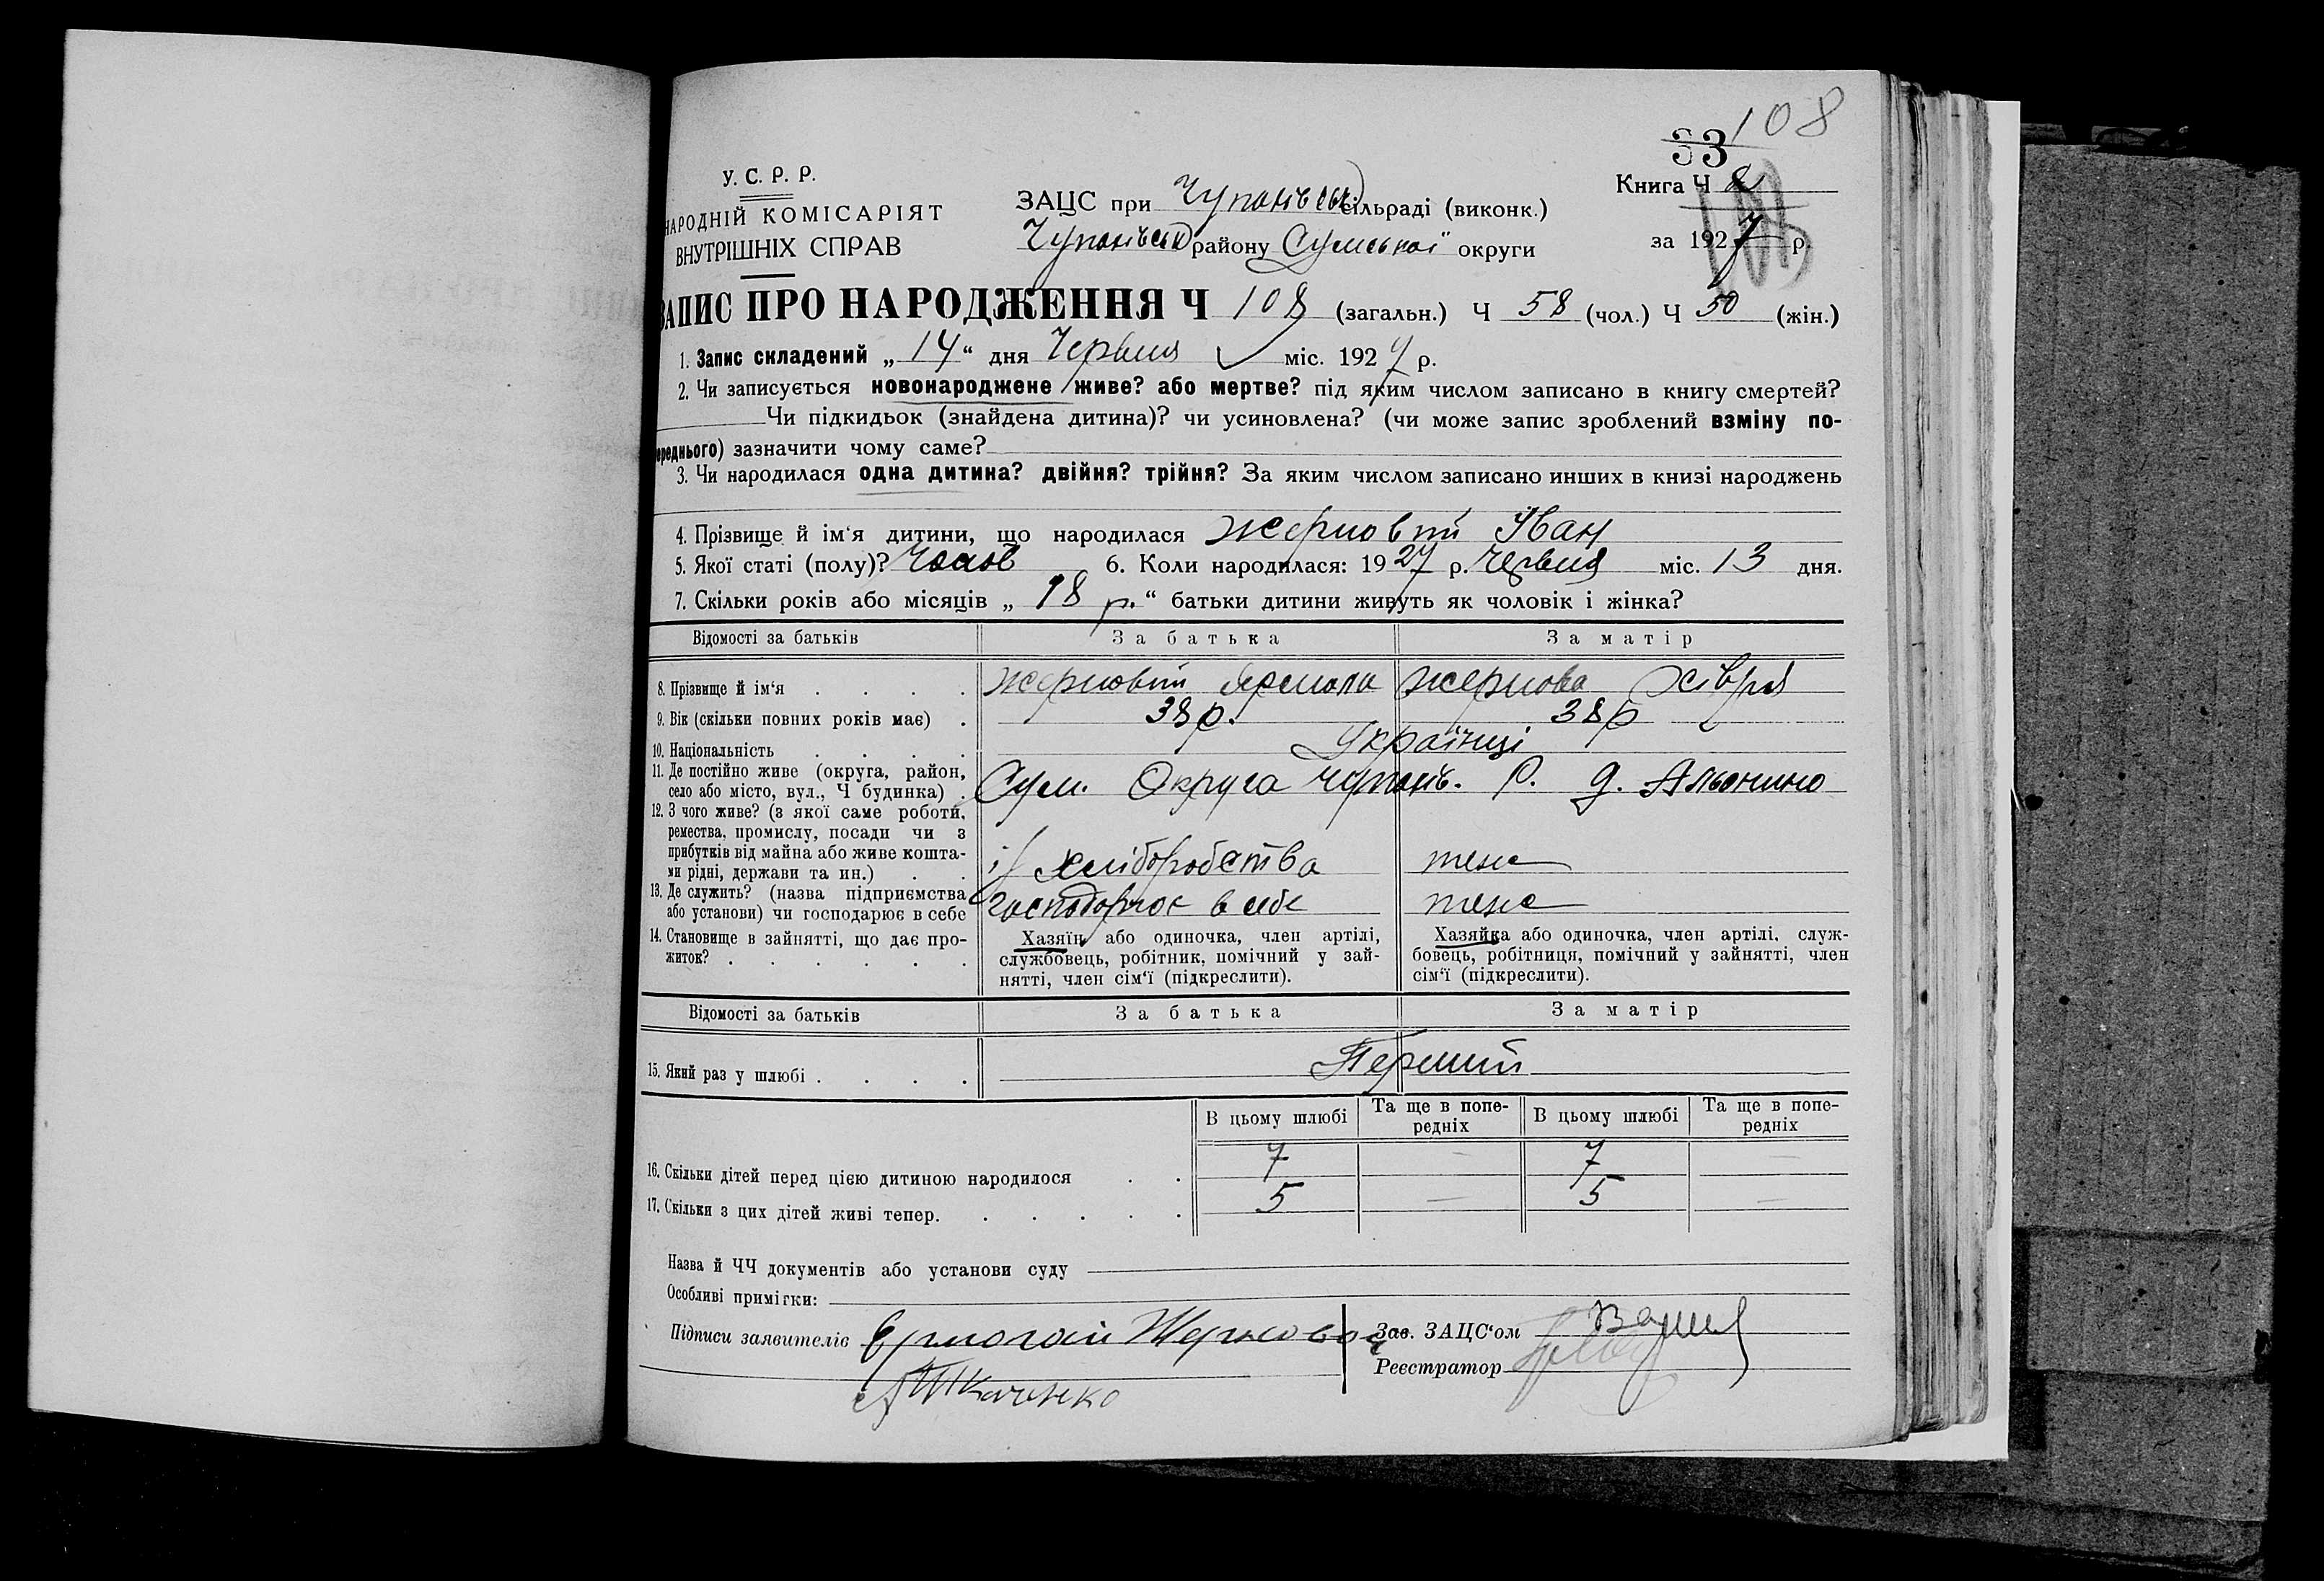 108
33
У. С. Р. Р.
НАРОДНІЙ КОМІСАРІЯТ
ВНУТРІШНІХ СПРАВ
ЗАЦС при Чупахівськ сільраді (виконк.)
Чупахівськ району Сумської округи
Книга Ч
за 1927 р.
ЗАПИС ПРО НАРОДЖЕННЯ Ч 108 (загальн.) Ч 58 (чол.) Ч 50 (жін.)
1. Запис складений „ 14 “ дня Червня міс. 1927 р.
2. Чи записується новонароджене живе? або мертве? під яким числом записано в книгу смертей?
Чи підкидьок (знайдена дитина)? чи усиновлена? (чи може запис зроблений взміну по-
ереднього) зазначити чому саме?
3. Чи народилася одна дитина? двійня? трійня? За яким числом записано инших в книзі народжень
4. Прізвище й ім‘я дитини, що народилася Жерновий Іван
5. Якої статі (полу)? Чолов 6. Коли народилася: 1927 р. Червня міс. 13 дня.
7. Скільки років або місяців „ 18 р. “ батьки дитини живуть як чоловік і жінка?
Відомості за батьків За батька За матір
8. Прізвище й ім‘я . . . . Жерновий Ярмола Жернова Хівря
9. Вік (скільки повних років має) . 38 р. 38 р
10. Національність . . . . Українці
11. Де постійно живе (округа, район,
село або місто, вул., Ч будинка) . Сум. Округа Чупахів. Р. д. Альонино
12. З чого живе? (з якої саме роботи,
ремества, промислу, посади чи з
прибутків від майна або живе кошта-
ми рідні, держави та ин.) . . із хліборобства теж
13. Де служить? (назва підприємства
або установи) чи господарює в себе господарює в себе теж
14. Становище в зайнятті, що дає про-
житок? . . . . . .
Хазяїн, або одиночка, член артілі,
службовець, робітник, помічний у зай-
нятті, член сім‘ї (підкреслити).
Хазяйка або одиночка, член артілі, служ-
бовець, робітниця, помічний у зайнятті, член
сім‘ї (підкреслити).
Відомості за батьків За батька За матір
15. Який раз у шлюбі . . . . Перший
В цьому шлюбі Та ще в попе-
редніх В цьому шлюбі Та ще в попе-
редніх
16. Скільки дітей перед цією дитиною народилося . . 7 — 7 —
17. Скільки з цих дітей живі тепер. . . . . . 5 — 5 —
Назва й ЧЧ документів або установи суду
Особливі примітки:
Підписи заявителів Ермолай Жерновой Зав. ЗАЦС‘ом
Реєстратор
А Ткаченко